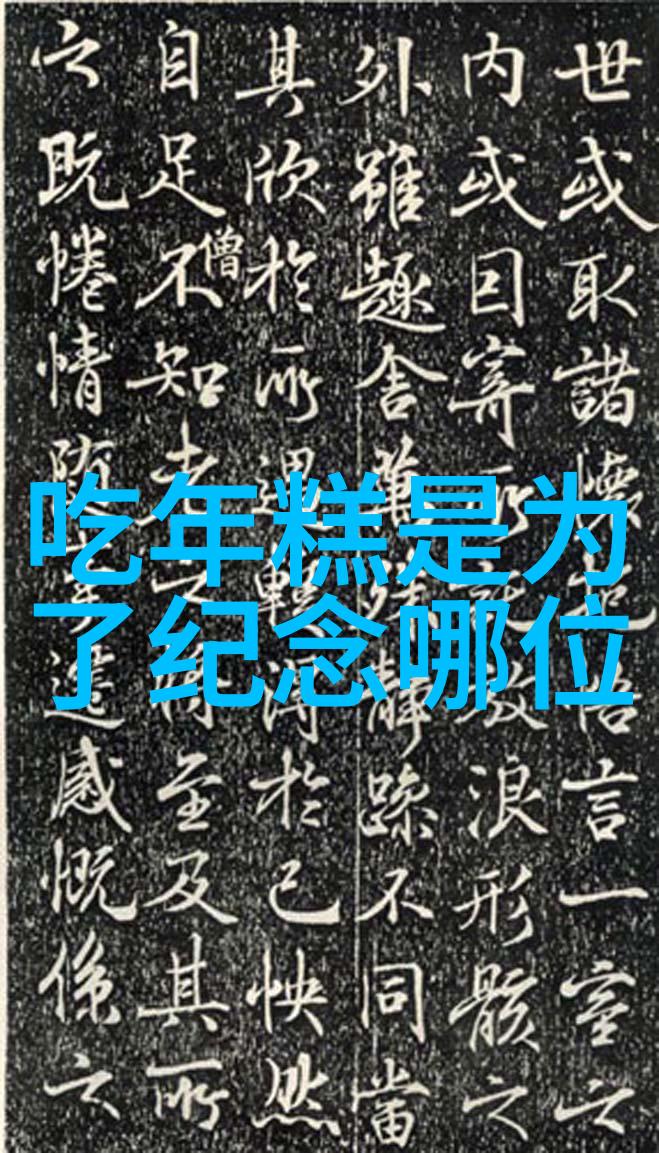 吃年糕是为
了纪念哪位
世或取諸懷抱悟言一室之
内或因寄所託放浪形骸之
外雖趣舍萬殊静躁不同當
其欣於所遇輙得於己怏然
自足不知老之將至及其所
僧
之既惓情随事遷感慨係之